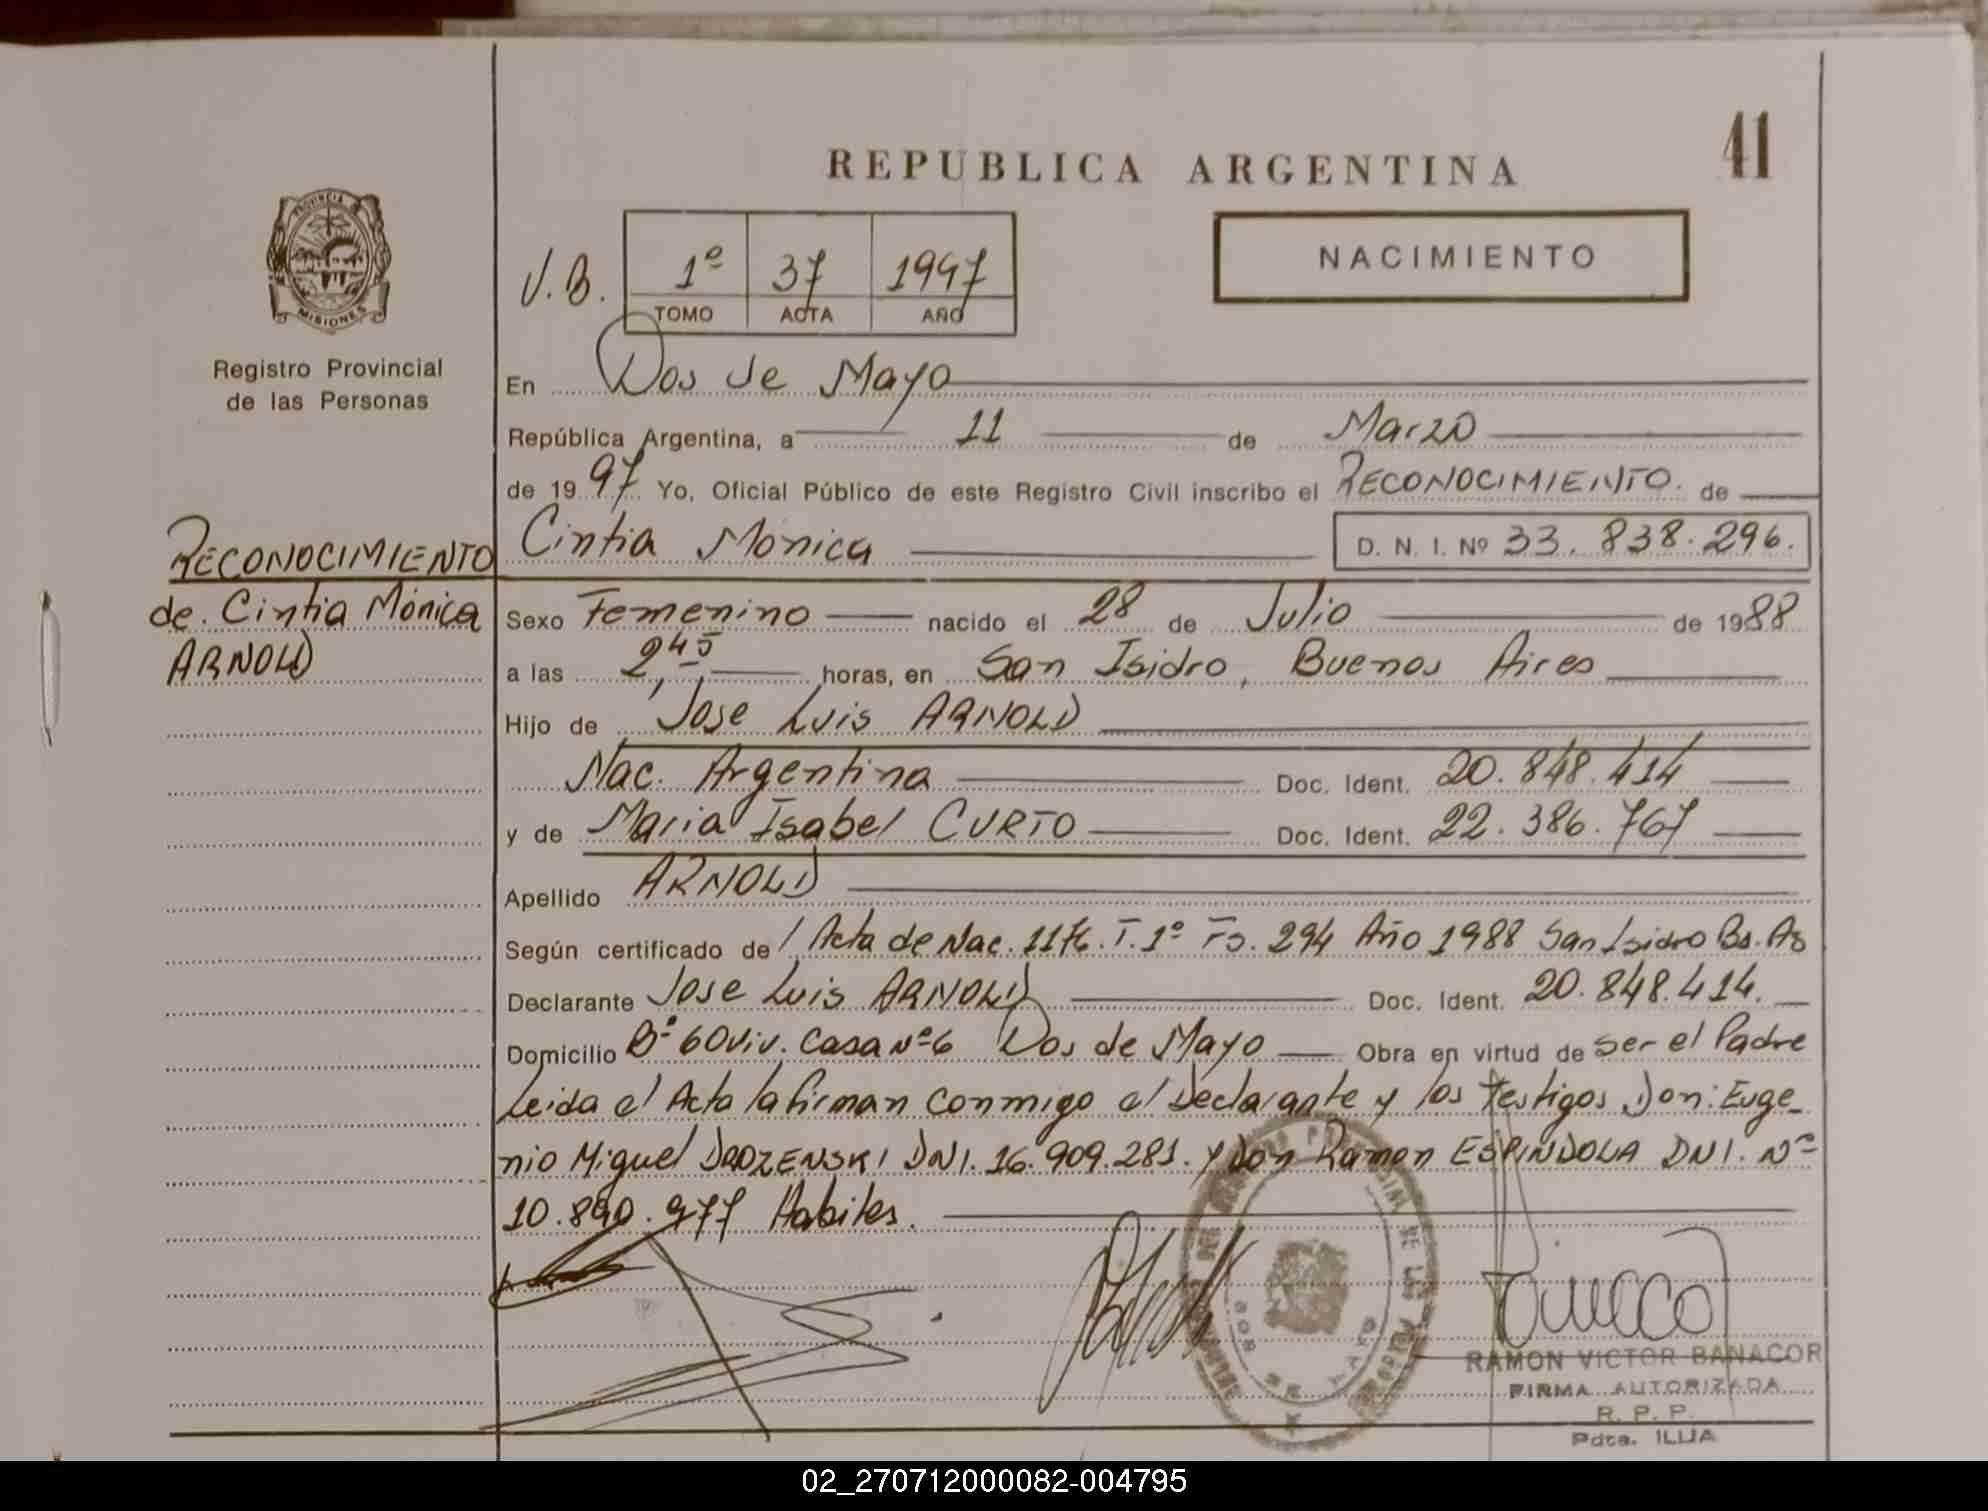 41
REPUBLICA ARGENTINA
NACIMIENTO
PROVINCIA DE
MISIONES
Registro Provincial
de las Personas
V.B.
1º 37 1997
TOMO ACTA AÑO
En Dos de Mayo
República Argentina, a 11 de Marzo
de 1997 Yo, Oficial Público de este Registro Civil inscribo el RECONOCIMIENTO. de
Cintia Mónica D. N. I. Nº 33.838.296.
RECONOCIMIENTO
de. Cintia Mónica
ARNOLD
Sexo Femenino nacido el 28 de Julio de 1988
a las 2,45 horas, en San Isidro, Buenos Aires
Hijo de Jose Luis ARNOLD
Nac. Argentina Doc. Ident. 20.848.414
y de Maria Isabel CURTO Doc. Ident. 22.386.767
Apellido ARNOLD
Según certificado de Acta de Nac. T. 1º Fs. 294 Año 1988 San Isidro Bs. As
Declarante Jose Luis ARNOLD Doc. Ident. 20.848.414.
Domicilio Bº 60 Viv. Casa Nº 6 Dos de Mayo Obra en virtud de ser el Padre
Leida el Acta la firman conmigo el declarante y los testigos Don: Euge_
nio Miguel DNI. 16.909.281. y Don Ramon ESPINDOLA DNI. Nº
10.890.977 Habiles.
RAMON VICTOR BANACOR
FIRMA AUTORIZADA
R. P. P.
Pdte. ILLIA
02_270712000082-004795